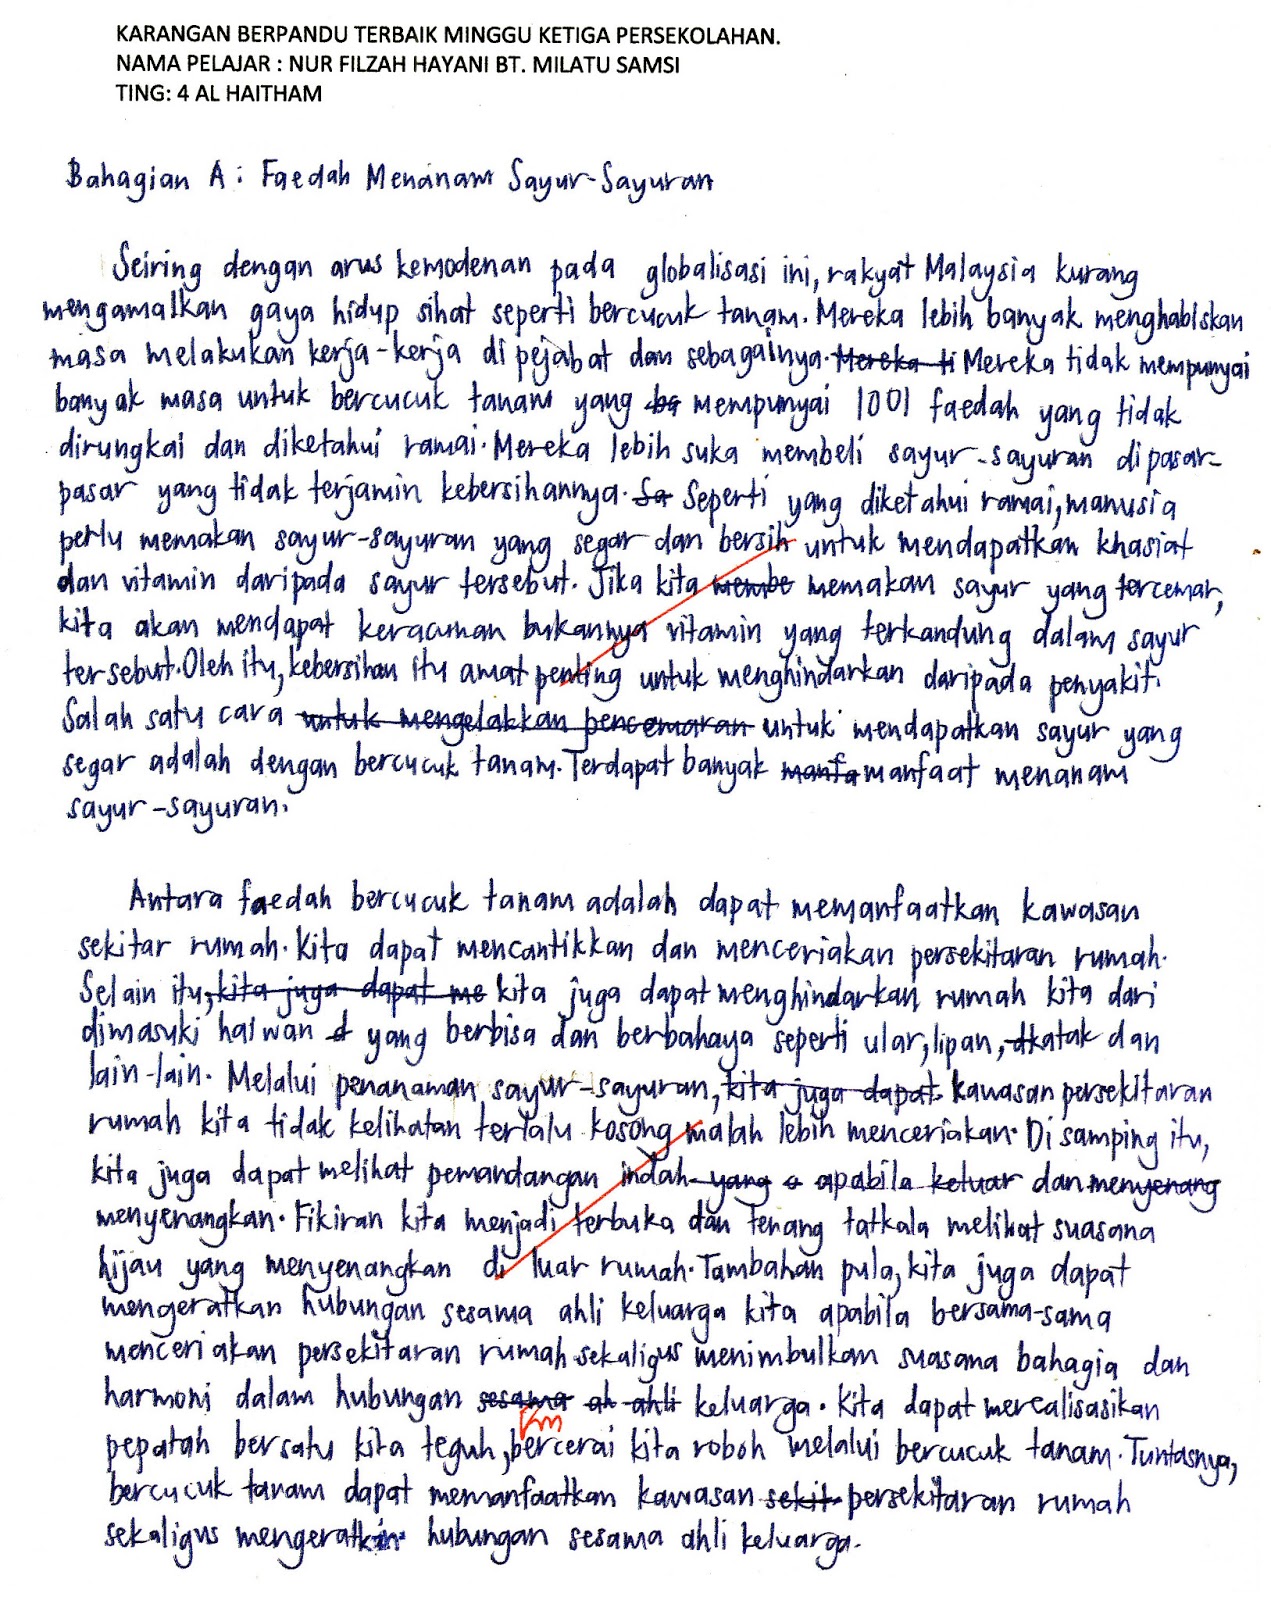 KARANGAN BERPANDU TERBAIK MINGGU KETIGA PERSEKOLAHAN.
NAMA PELAJAR : NUR FILZAH HAYANI BT. MILATU SAMSI
TING: 4 AL HAITHAM
Bahagian A : Faedah Menanam Sayur-Sayuran
Seiring dengan arus kemodenan pada globalisasi ini, rakyat Malaysia kurang
mengamalkan gaya hidup sihat seperti bercucuk tanam. Mereka lebih banyak menghabiskan
masa melakukan kerja-kerja di pejabat dan sebagainya. Mereka ti Mereka tidak mempunyai
banyak masa untuk bercucuk tanam yang ba mempunyai 1001 faedah yang tidak
dirungkai dan diketahui ramai. Mereka lebih suka membeli sayur-sayuran dipasar-
pasar yang tidak terjamin kebersihannya. Se Seperti yang diketahui ramai, manusia
perlu memakan sayur-sayuran yang segar dan bersih untuk mendapatkan khasiat
dan vitamin daripada sayur tersebut. Jika kita membe memakan sayur yang tercemar,
kita akan mendapat keracunan bukannya vitamin yang terkandung dalam sayur
tersebut. Oleh itu, kebersihan itu amat penting untuk menghindarkan daripada penyakit.
Salah satu cara untuk mengelakkan pencemaran untuk mendapatkan sayur yang
segar adalah dengan bercucuk tanam. Terdapat banyak manfa manfaat menanam
sayur-sayuran.
Antara faedah bercucuk tanam adalah dapat memanfaatkan kawasan
sekitar rumah. Kita dapat mencantikkan dan menceriakan persekitaran rumah.
Selain itu, kita juga dapat me kita juga dapat menghindarkan rumah kita dari
dimasuki haiwan d yang berbisa dan berbahaya seperti ular, lipan, katak dan
lain-lain. Melalui penanaman sayur-sayuran, kita juga dapat kawasan persekitaran
rumah kita tidak kelihatan terlalu kosong malah lebih menceriakan. Di samping itu,
kita juga dapat melihat pemandangan indah yang apabila keluar dan menyenang
menyenangkan. Fikiran kita menjadi terbuka dan tenang tatkala melihat suasana
hijau yang menyenangkan di luar rumah. Tambahan pula, kita juga dapat
mengeratkan hubungan sesama ahli keluarga kita apabila bersama-sama
menceriakan persekitaran rumah sekaligus menimbulkan suasana bahagia dan
harmoni dalam hubungan sesama ah ahli keluarga. Kita dapat merealisasikan
pepatah bersatu kita teguh, bercerai kita roboh melalui bercucuk tanam. Tuntasnya,
bercucuk tanam dapat memanfaatkan kawasan sekit persekitaran rumah
sekaligus mengeratkan hubungan sesama ahli keluarga.